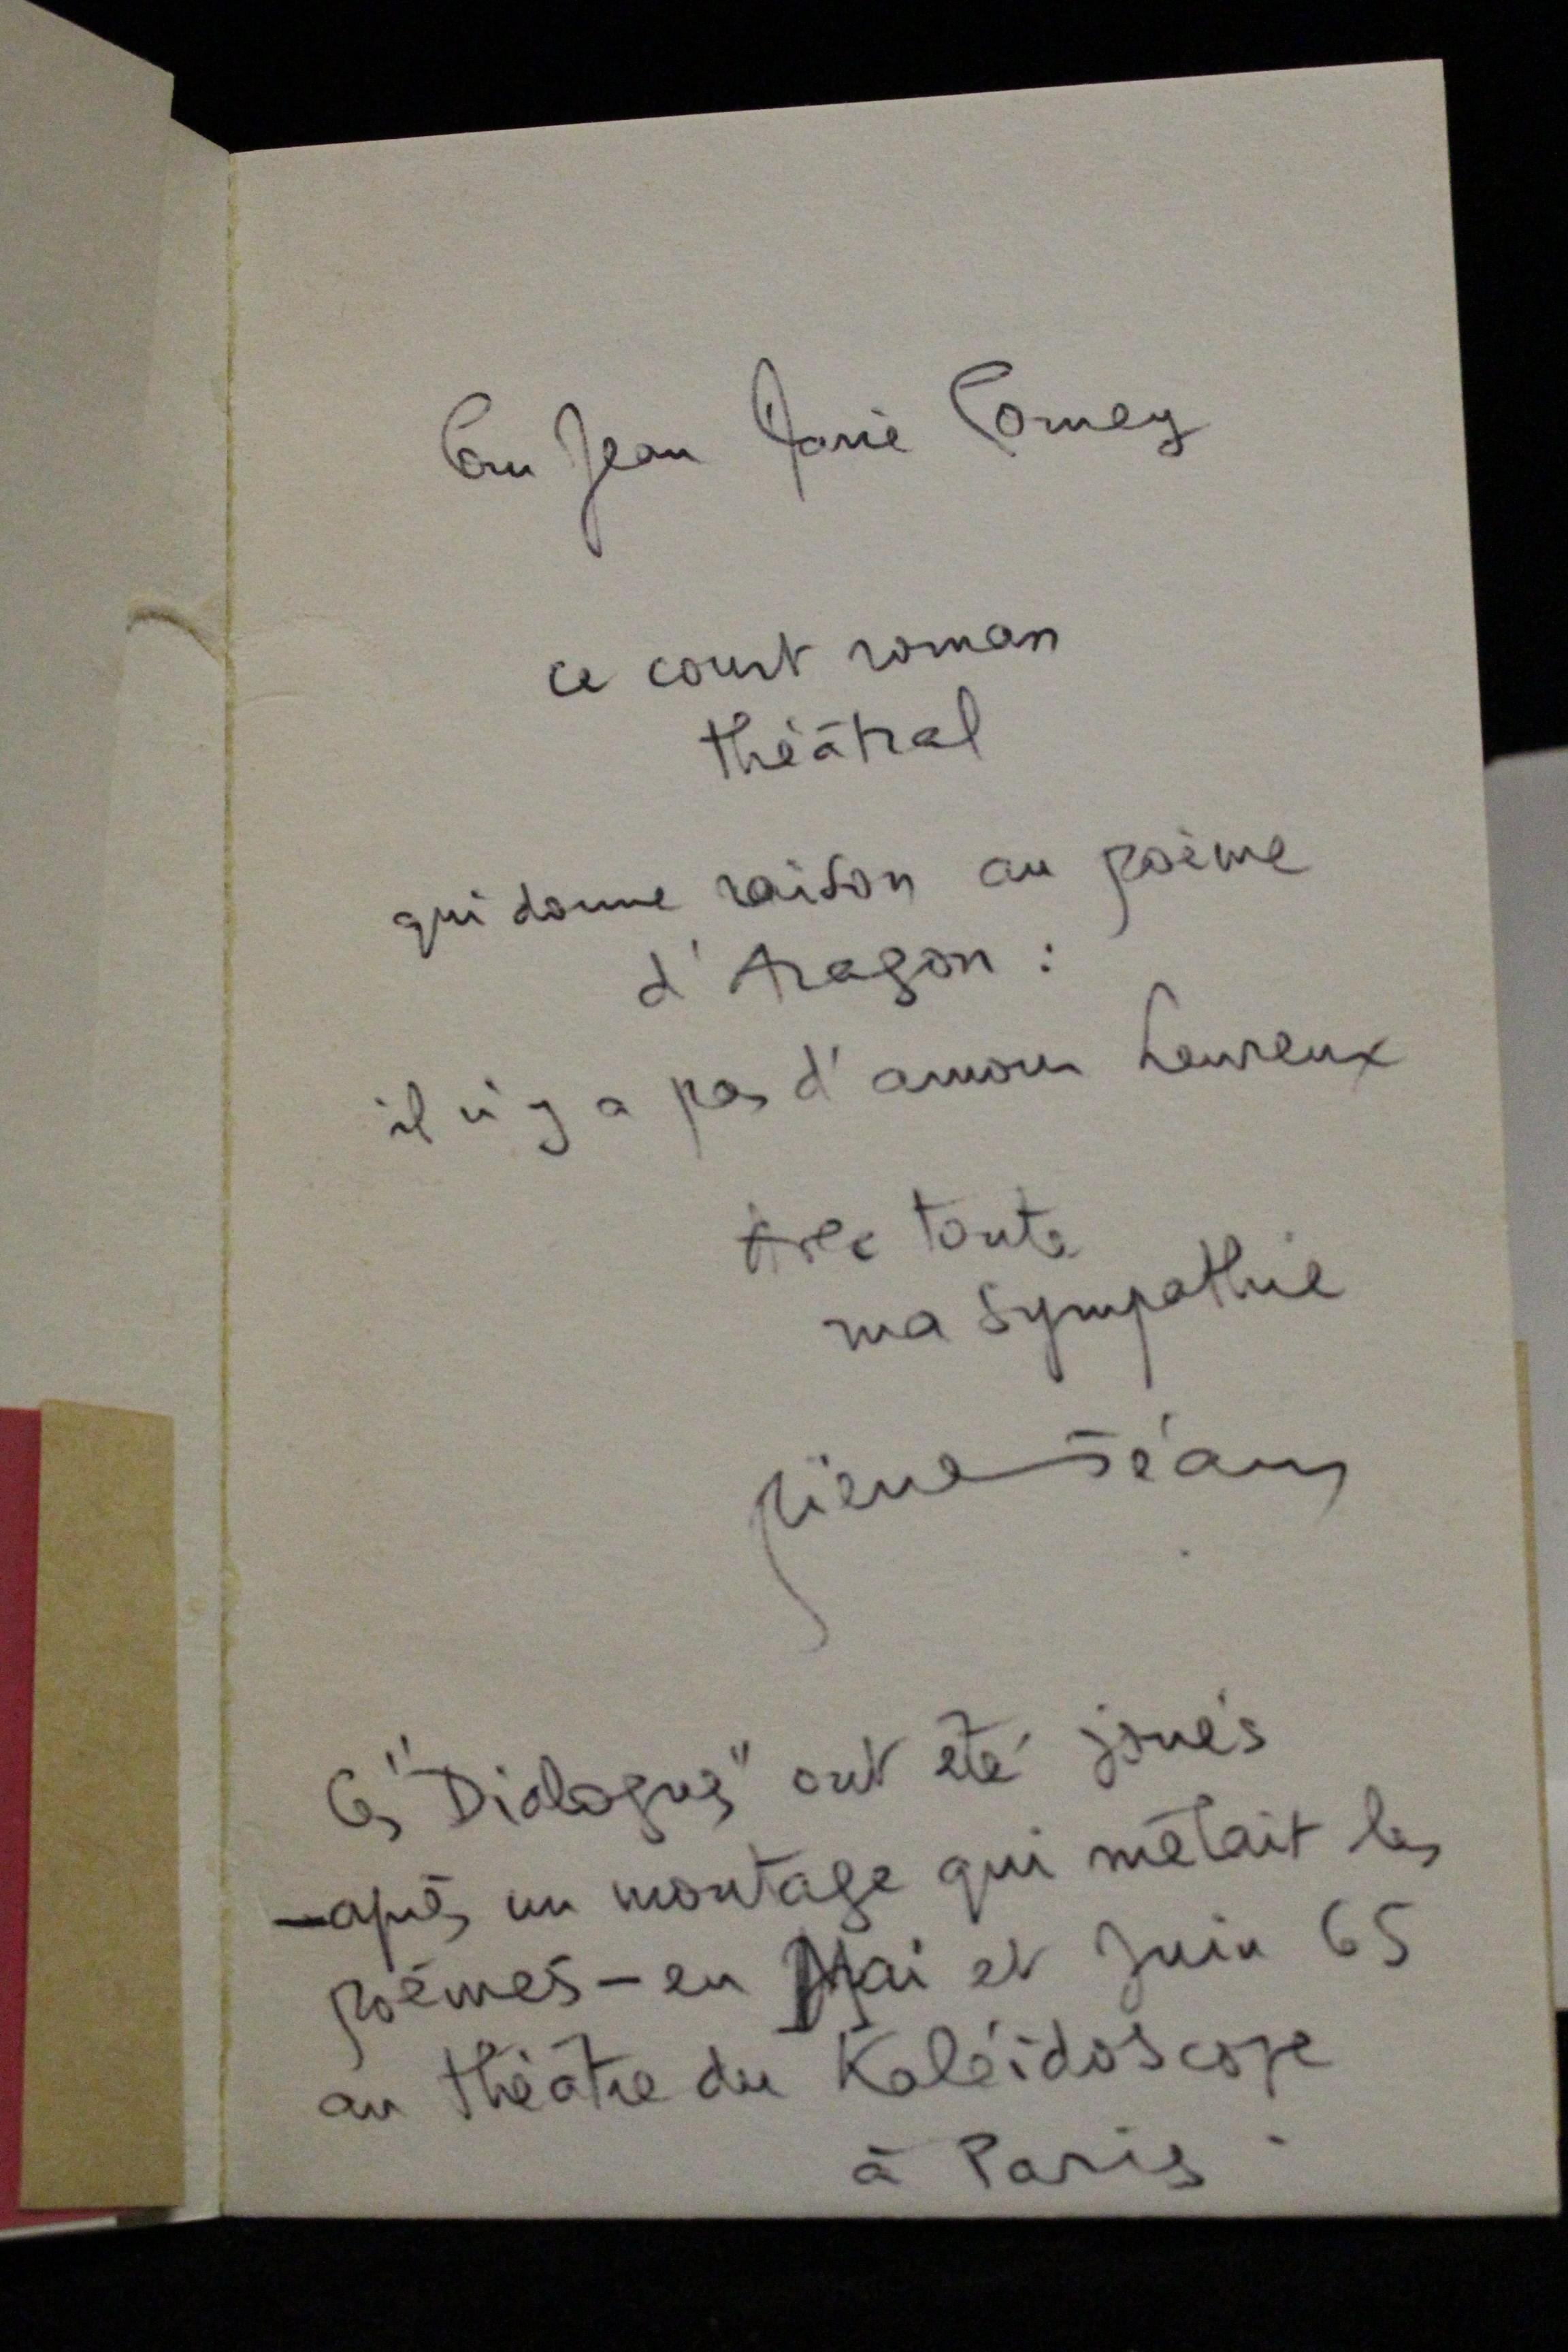 Pour Jean Marie Cormey
ce court roman
théâtral
qui donne raison au poème
d'Aragon :
il n'y a pas d'amour heureux
Avec toute
ma sympathie
Pierre Béarn
Ces "Dialogues" ont été joués
—après un montage qui mêlait les
poèmes—en Mai et Juin 65
au théâtre du Kaléidoscope
à Paris.